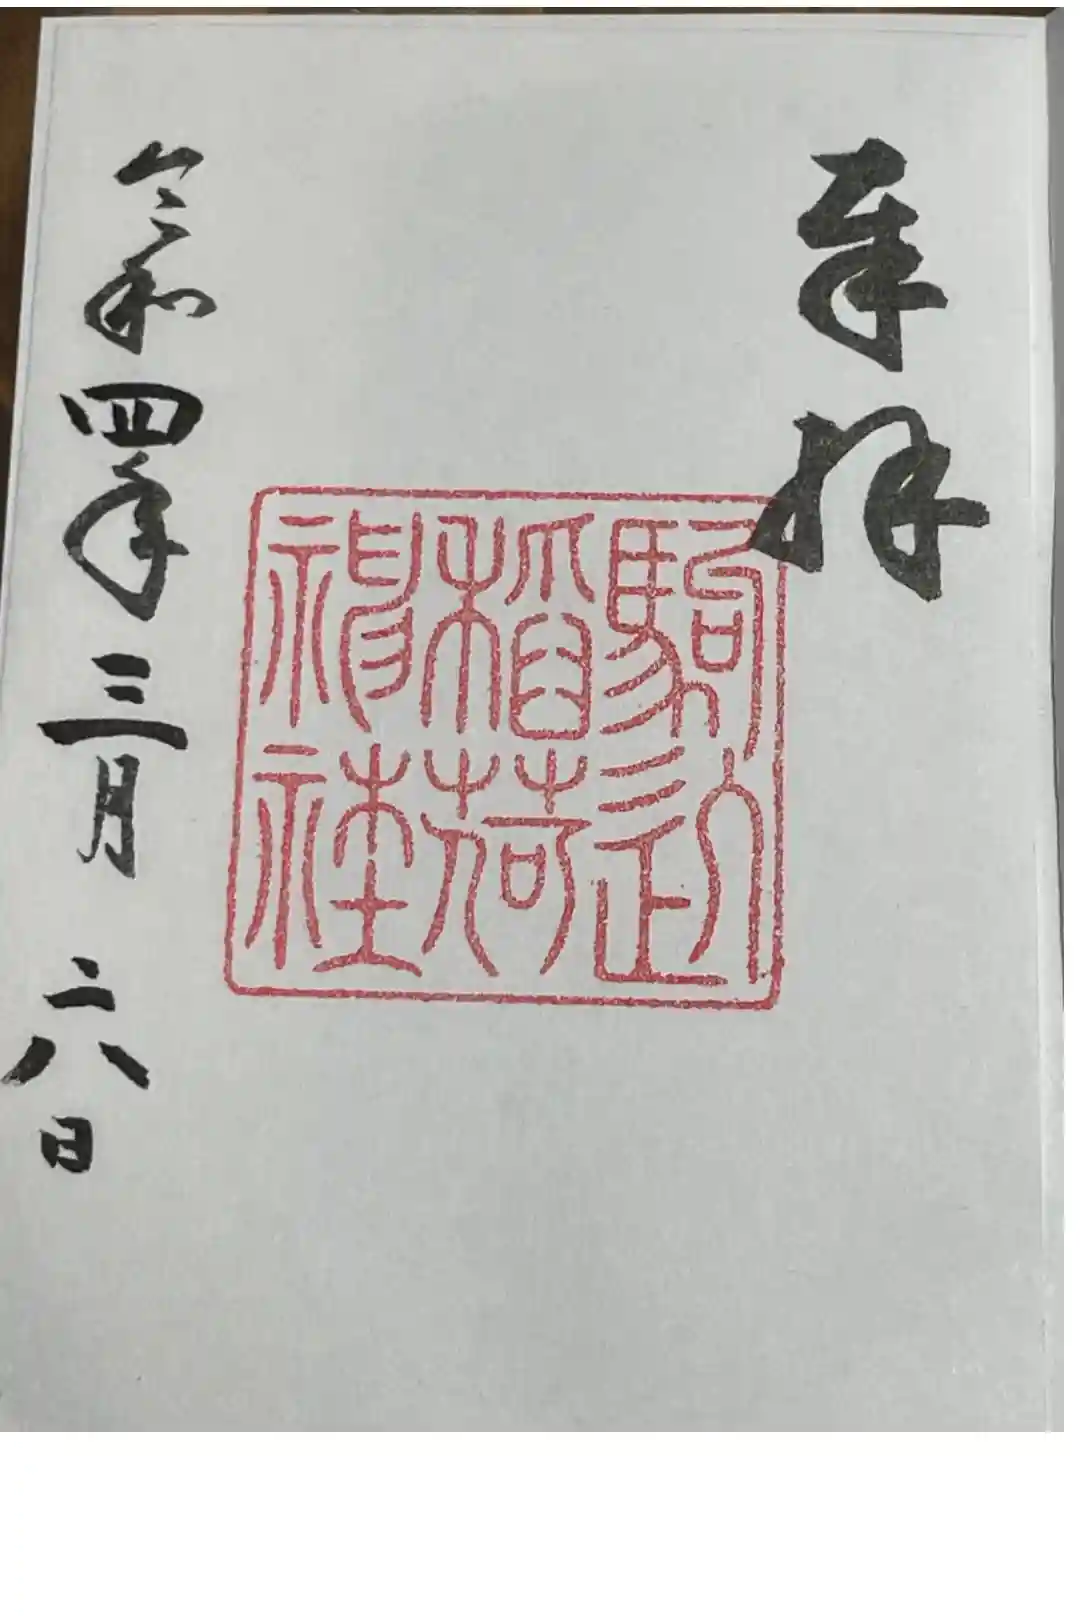 奉拝
駒込
稲荷
神社
令和四年三月二八日